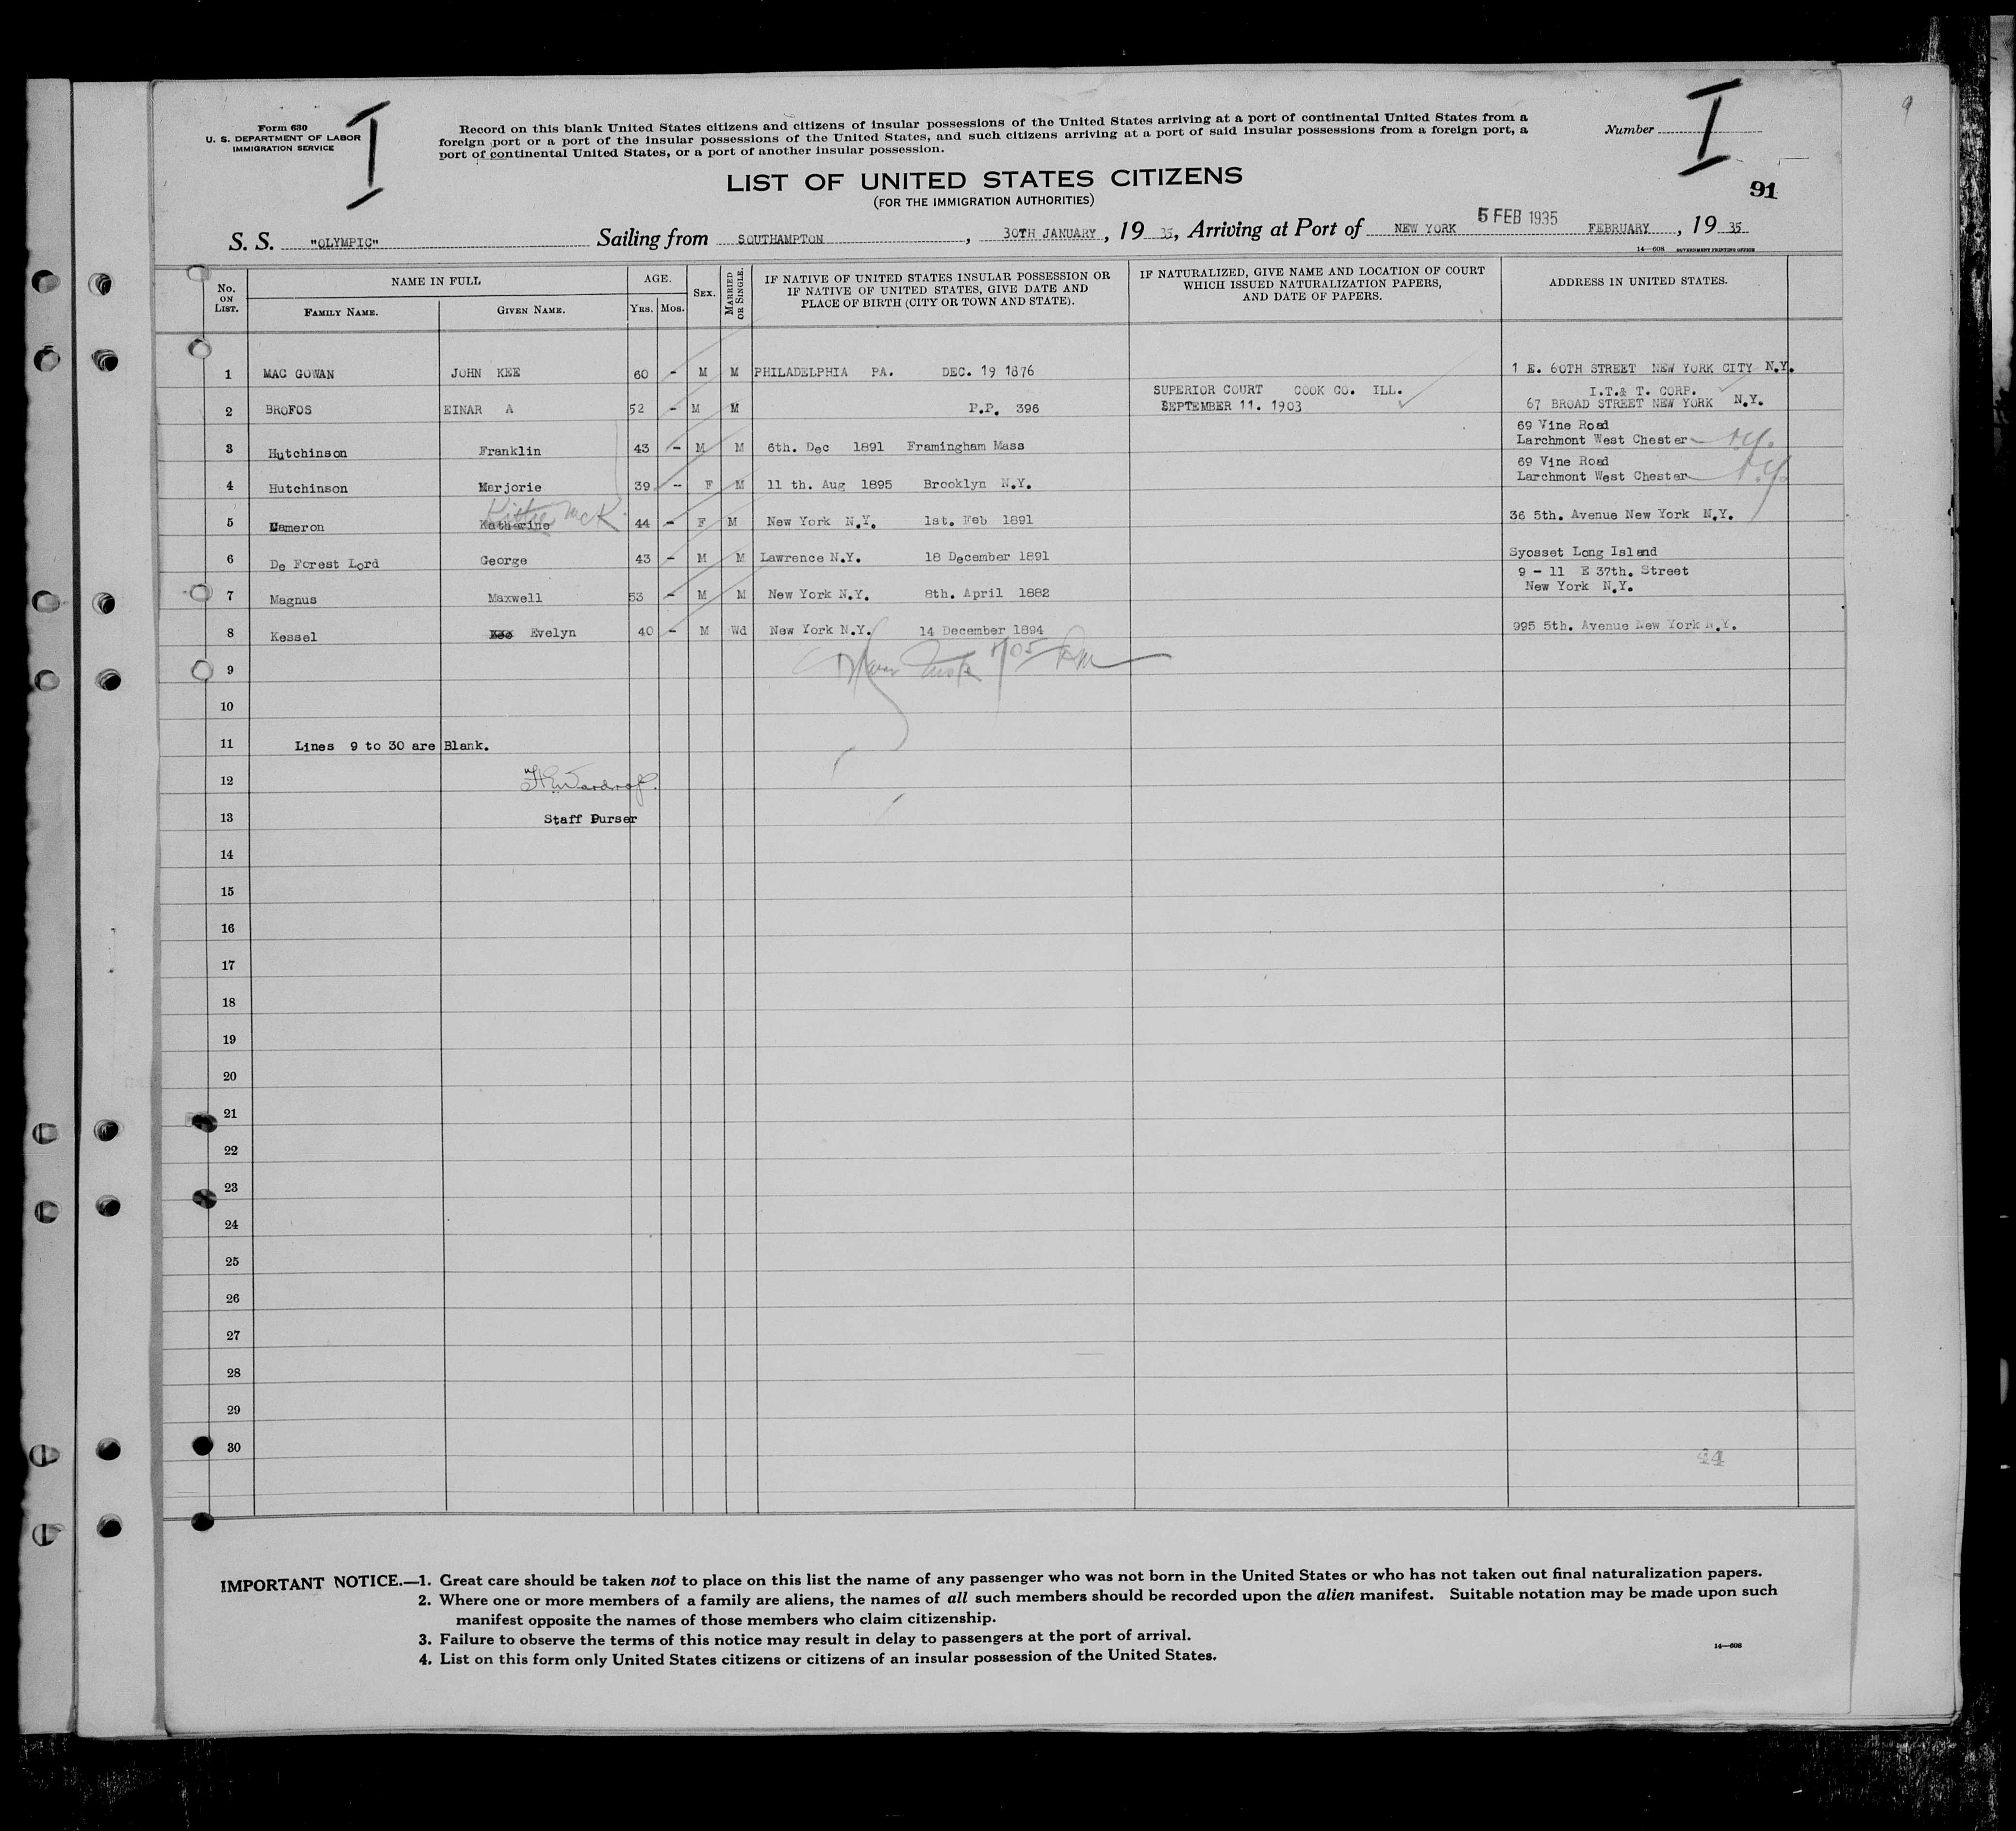 Form 630
U. S. DEPARTMENT OF LABOR
IMMIGRATION SERVICE
I
Record on this blank United States citizens and citizens of insular possessions of the United States arriving at a port of continental United States from a
foreign port or a port of the insular possessions of the United States, and such citizens arriving at a port of said insular possessions from a foreign port, a
port of continental United States, or a port of another insular possession.
Number
I
9
LIST OF UNITED STATES CITIZENS
(FOR THE IMMIGRATION AUTHORITIES)
91
S. S. "OLYMPIC" Sailing from SOUTHAMPTON, 30TH JANUARY, 19 35, Arriving at Port of NEW YORK 5 FEB 1935 FEBRUARY, 19 35
14—608 GOVERNMENT PRINTING OFFICE
No. ON LIST. NAME IN FULL AGE. SEX. MARRIED OR SINGLE. IF NATIVE OF UNITED STATES INSULAR POSSESSION OR IF NATIVE OF UNITED STATES, GIVE DATE AND PLACE OF BIRTH (CITY OR TOWN AND STATE). IF NATURALIZED, GIVE NAME AND LOCATION OF COURT WHICH ISSUED NATURALIZATION PAPERS, AND DATE OF PAPERS. ADDRESS IN UNITED STATES.
FAMILY NAME. GIVEN NAME. YRS. MOS.
1 MAC GOWAN JOHN KEE 60 - M M PHILADELPHIA PA. DEC. 19 1876 1 E. 60TH STREET NEW YORK CITY N.Y.
SUPERIOR COURT COOK CO. ILL. I.T.& T. CORP.
2 BROFOS EINAR A 52 - M M P.P. 396 SEPTEMBER 11. 1903 67 BROAD STREET NEW YORK N.Y.
69 Vine Road
3 Hutchinson Franklin 43 - M M 6th. Dec 1891 Framingham Mass Larchmont West Chester N.Y.
69 Vine Road
4 Hutchinson Marjorie 39 - F M 11 th. Aug 1895 Brooklyn N.Y. Larchmont West Chester N.Y.
Kittie McK
5 Cameron Katharine 44 - F M New York N.Y. 1st. Feb 1891 36 5th. Avenue New York N.Y.
6 De Forest Lord George 43 - M M Lawrence N.Y. 18 December 1891 Syosset Long Island
9 - 11 E 37th. Street
7 Magnus Maxwell 53 - M M New York N.Y. 8th. April 1882 New York N.Y.
8 Kessel Evelyn 40 - M Wd New York N.Y. 14 December 1894 995 5th. Avenue New York N.Y.
9
10
11 Lines 9 to 30 are Blank.
12
13 Staff Purser
14
15
16
17
18
19
20
21
22
23
24
25
26
27
28
29
30
44
IMPORTANT NOTICE.—1. Great care should be taken not to place on this list the name of any passenger who was not born in the United States or who has not taken out final naturalization papers.
2. Where one or more members of a family are aliens, the names of all such members should be recorded upon the alien manifest. Suitable notation may be made upon such
manifest opposite the names of those members who claim citizenship.
3. Failure to observe the terms of this notice may result in delay to passengers at the port of arrival.
14—608
4. List on this form only United States citizens or citizens of an insular possession of the United States.